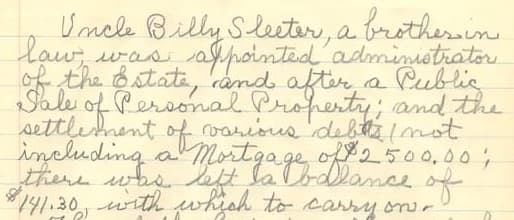 Uncle Billy Sleeter, a brother in
law, was appointed administrator
of the Estate, and after a Public
Sale of Personal Property; and the
settlement of various debts / not
including a Mortgage of $2500.00;
there was left a balance of
$141.30, with which to carry on.